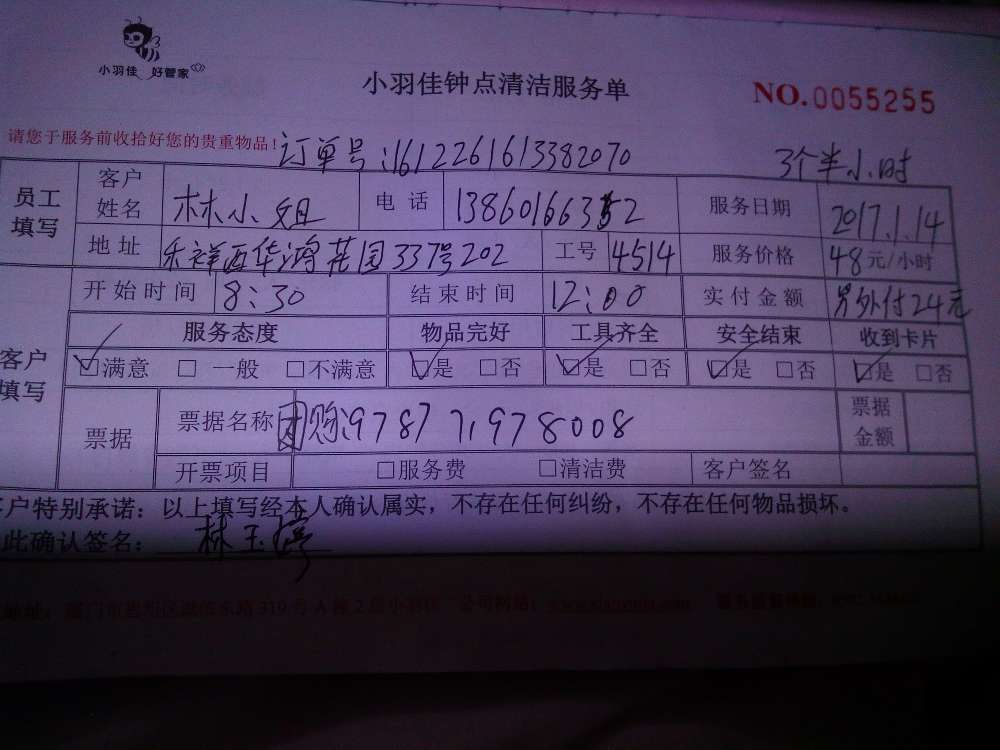 小羽佳 好管家
小羽佳钟点清洁服务单
NO.0055255
请您于服务前收拾好您的贵重物品!
订单号:1612261613382070
3个半小时
员工填写 客户姓名 林小姐 电话 服务日期 2017.1.14
地址 祥西华鸿花园337号202 工号 4514 服务价格 48元/小时
开始时间 8:30 结束时间 12:00 实付金额 另外付24元
客户填写 服务态度 物品完好 工具齐全 安全结束 收到卡片
☑满意 □ 一般 □不满意 ☑是 □否 ☑是 □否 ☑是 □否 ☑是 □否
票据 票据名称 团购:97877,978008 票据金额
开票项目 □服务费 □清洁费 客户签名
客户特别承诺:以上填写经本人确认属实,不存在任何纠纷,不存在任何物品损坏。
此确认签名: 林玉婷